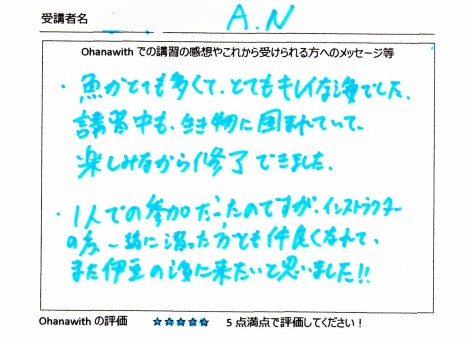 受講者名 A.N
Ohanawith での講習の感想やこれから受けられる方へのメッセージ等
・魚がとても多くて、とてもキレイな海でした。
講習中も、生き物に囲まれていて、
楽しみながら修了できました。
・1人での参加だったのですが、インストラクター
の方、一緒に潜った方とも仲良くなれて、
また伊豆の海に来たいと思いました!!
Ohanawith の評価 ★★★★★ 5 点満点で評価してください!